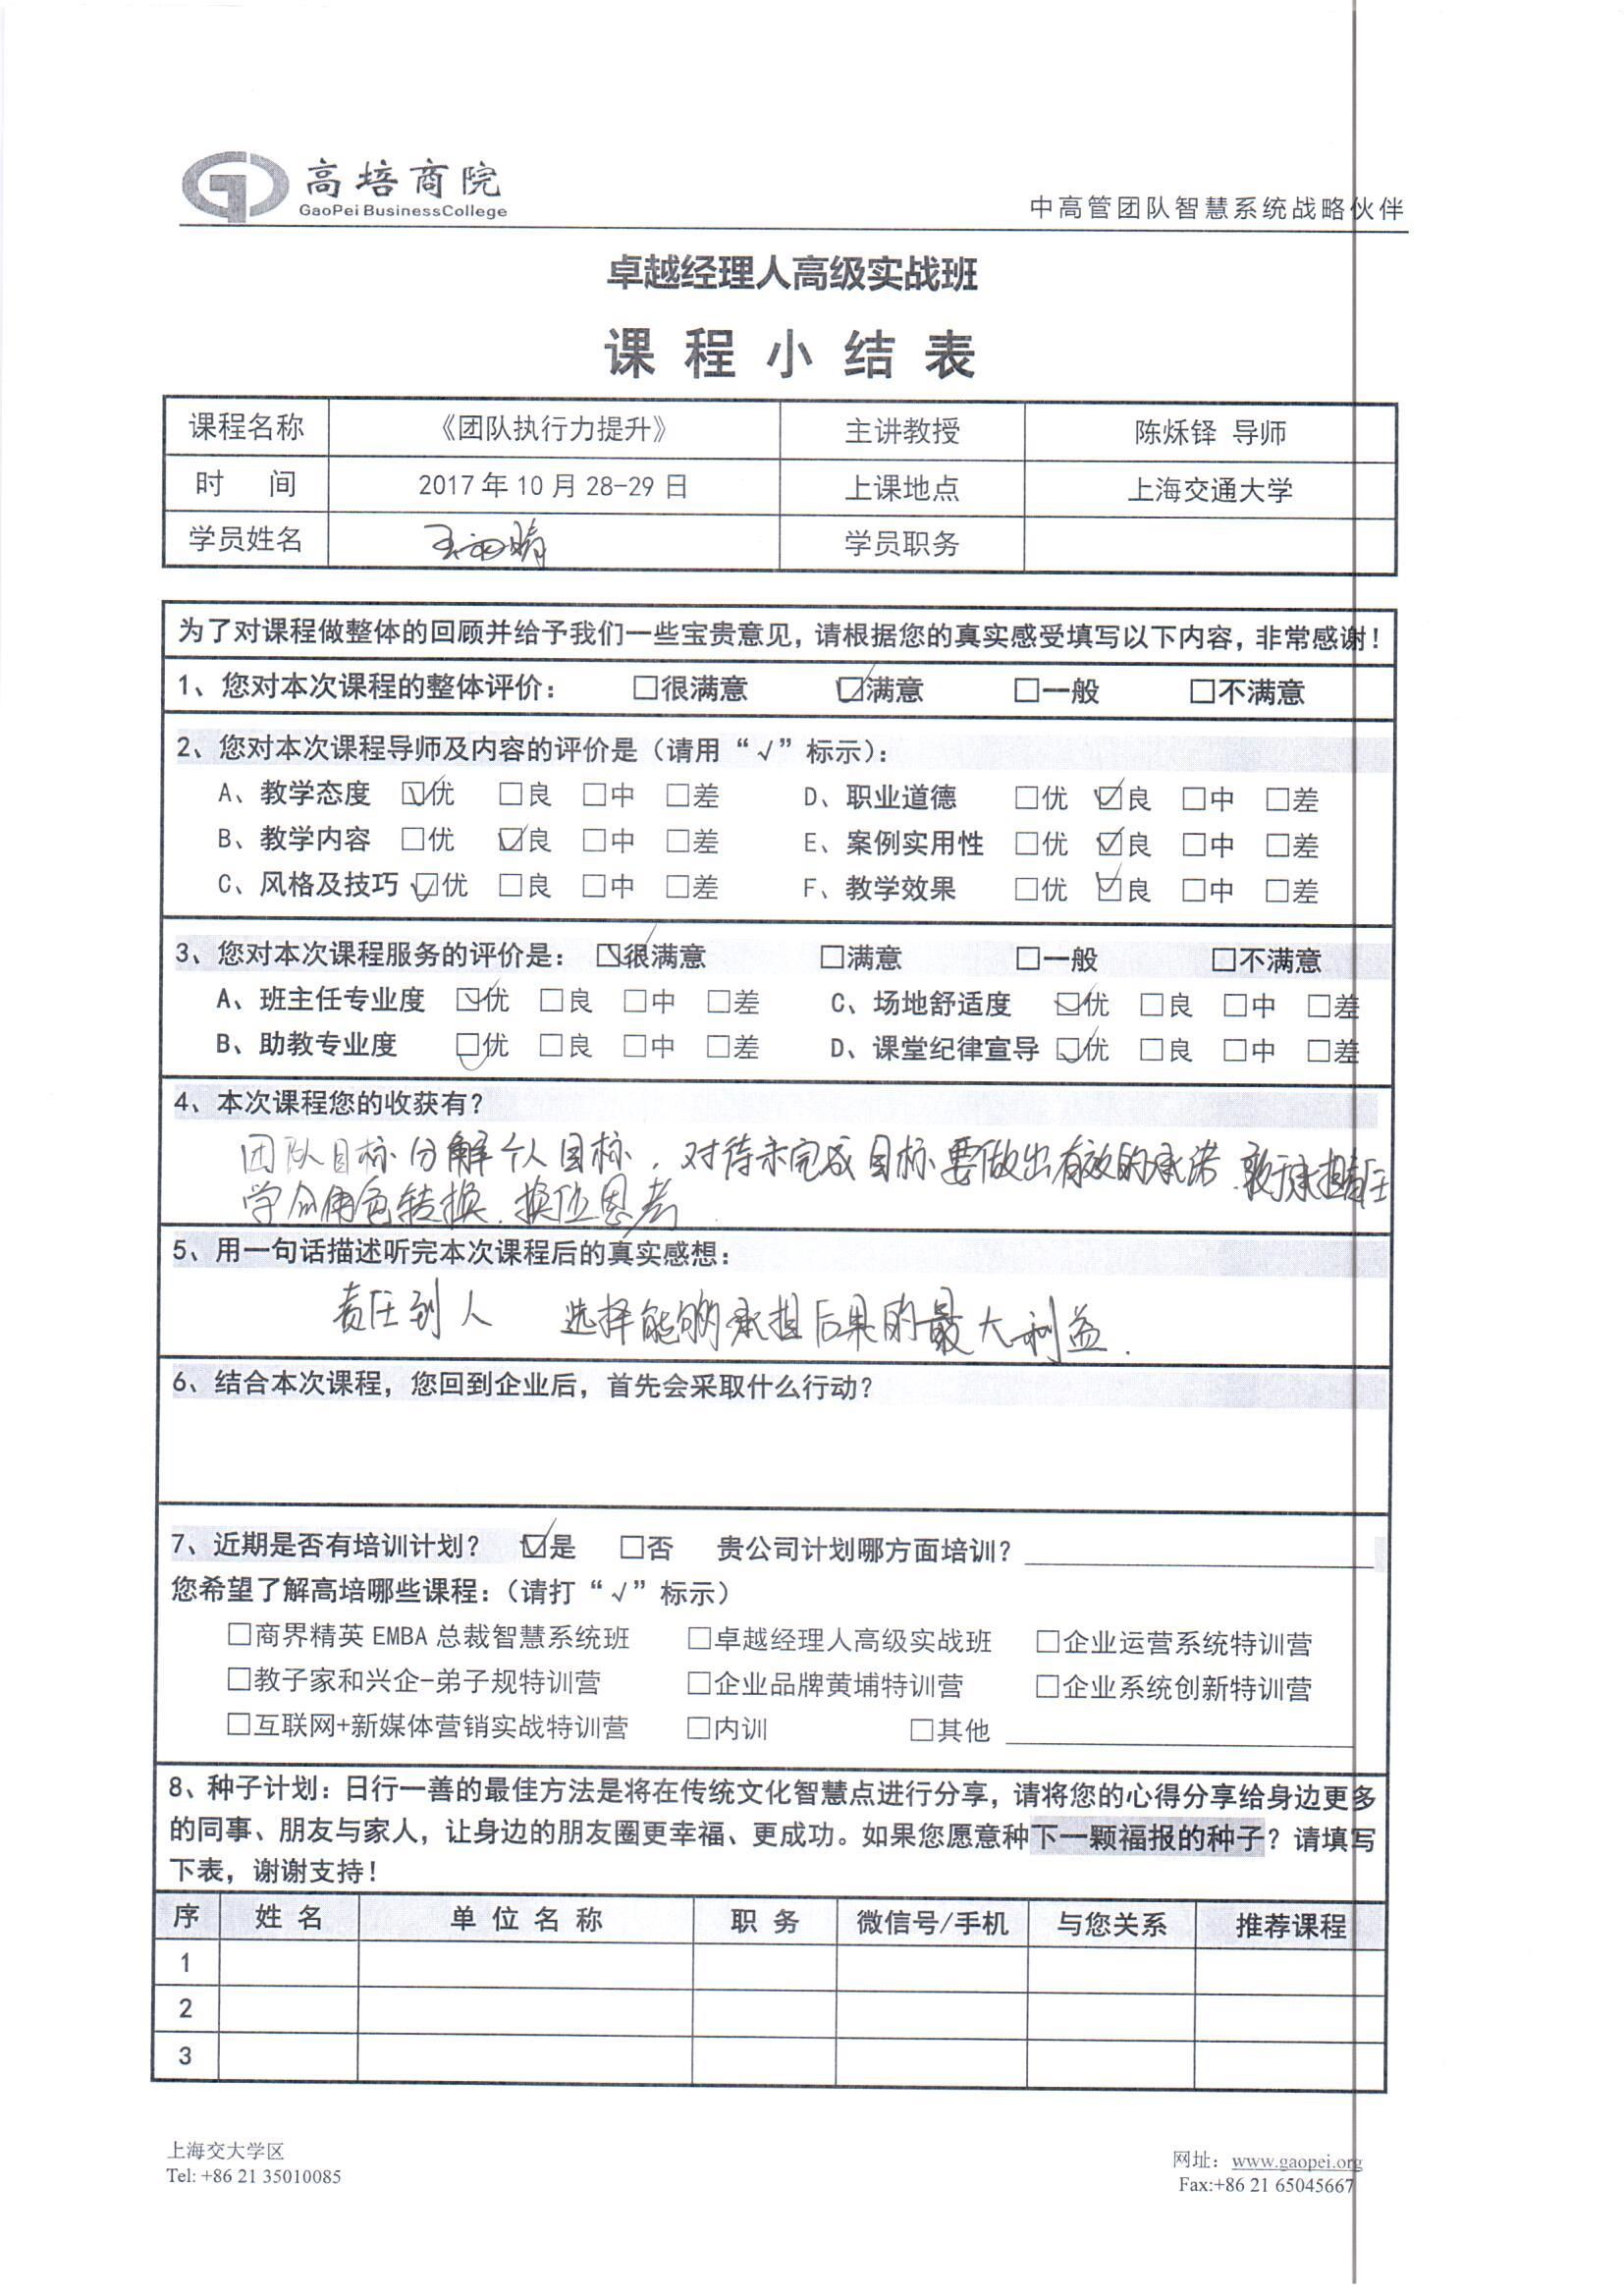 高培商院
GaoPei BusinessCollege
中高管团队智慧系统战略伙伴
卓越经理人高级实战班
课程小结表
课程名称 《团队执行力提升》 主讲教授 陈烁铎 导师
时 间 2017年10月28-29日 上课地点 上海交通大学
学员姓名 王雨晴 学员职务
为了对课程做整体的回顾并给予我们一些宝贵意见，请根据您的真实感受填写以下内容，非常感谢！
1、您对本次课程的整体评价： □很满意 ☑满意 □一般 □不满意
2、您对本次课程导师及内容的评价是（请用“√”标示）：
A、教学态度 ☑优 □良 □中 □差 D、职业道德 □优 ☑良 □中 □差
B、教学内容 □优 ☑良 □中 □差 E、案例实用性 □优 ☑良 □中 □差
C、风格及技巧 ☑优 □良 □中 □差 F、教学效果 □优 ☑良 □中 □差
3、您对本次课程服务的评价是： ☑很满意 □满意 □一般 □不满意
A、班主任专业度 ☑优 □良 □中 □差 C、场地舒适度 ☑优 □良 □中 □差
B、助教专业度 ☑优 □良 □中 □差 D、课堂纪律宣导 ☑优 □良 □中 □差
4、本次课程您的收获有？
团队目标分解个人目标，对待未完成目标要做出有效的承诺，敢于承担责任
学会角色转换，换位思考
5、用一句话描述听完本次课程后的真实感想：
责任到人 选择能够承担后果的最大利益.
6、结合本次课程，您回到企业后，首先会采取什么行动？
7、近期是否有培训计划？ ☑是 □否 贵公司计划哪方面培训？
您希望了解高培哪些课程：（请打“√”标示）
□商界精英EMBA总裁智慧系统班 □卓越经理人高级实战班 □企业运营系统特训营
□教子家和兴企-弟子规特训营 □企业品牌黄埔特训营 □企业系统创新特训营
□互联网+新媒体营销实战特训营 □内训 □其他
8、种子计划：日行一善的最佳方法是将在传统文化智慧点进行分享，请将您的心得分享给身边更多
的同事、朋友与家人，让身边的朋友圈更幸福、更成功。如果您愿意种下一颗福报的种子？请填写
下表，谢谢支持！
序 姓 名 单 位 名 称 职 务 微信号/手机 与您关系 推荐课程
1
2
3
上海交大学区 网址：www.gaopei.org
Tel: +86 21 35010085 Fax:+86 21 65045667